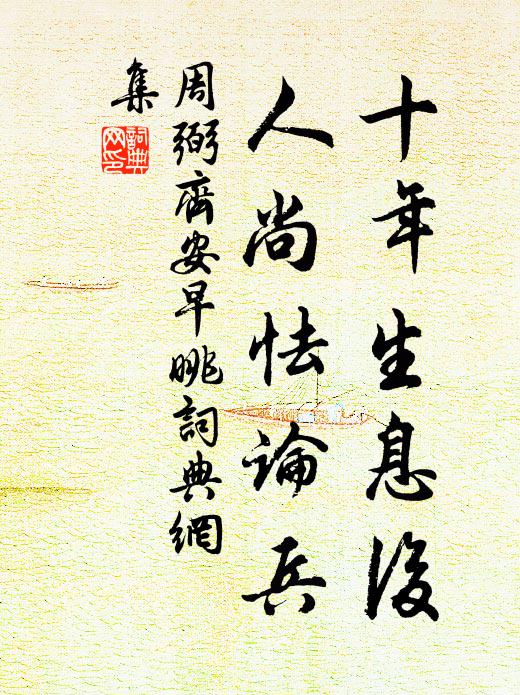 十年生息後
人尚怯論兵
周弼齊安早眺詞典網
集
詞典
网印